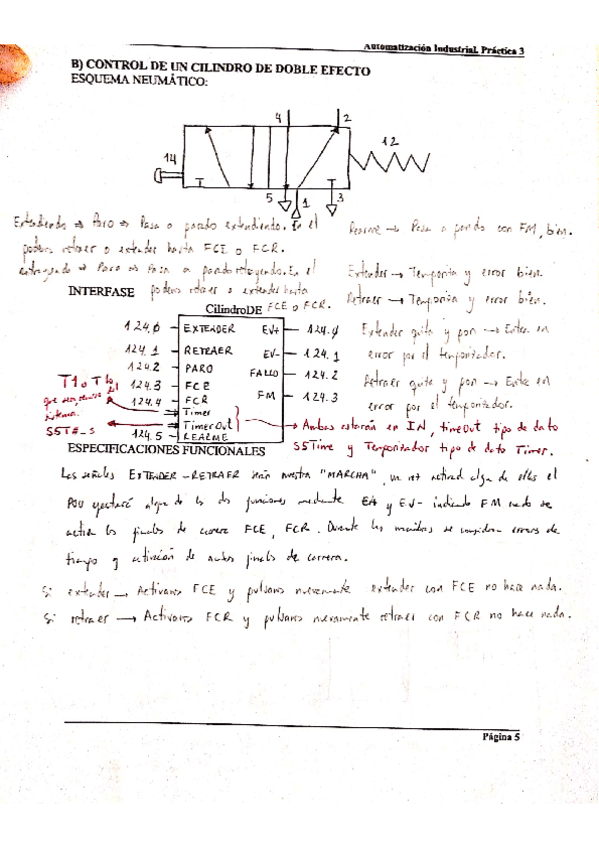 Automatización Industrial. Práctica 3
B) CONTROL DE UN CILINDRO DE DOBLE EFECTO
ESQUEMA NEUMÁTICO:
4 2
12
14
5 1 3
Extendiendo → Paro → Pasa a parado extendiendo. En el
podemos retraer o extender hasta FCE o FCR.
Rearme → Pasa a parado con FM, bien.
→ Paro → Pasa a parado retrayendo. En el
podemos retraer o extender hasta
FCE o FCR.
Extender → Temporiza y error bien.
Retraer → Temporiza y error bien.
INTERFASE
CilindroDE
124.0 EXTENDER EV+ 124.0
124.1 RETRAER EV- 124.1
124.2 PARO FALLO 124.2
124.3 FCE FM 124.3
124.4 FCR
Timer
TimerOut
124.5 REARME
Extender quita y pon → Entra en
error por el temporizador.
Retraer quita y pon → Entra en
error por el temporizador.
S5T#_s
→ Ambas estarán en IN, timeOut tipo de dato
S5Time y Temporizador tipo de dato Timer.
ESPECIFICACIONES FUNCIONALES
Las señales EXTENDER - RETRAER serán nuestra "MARCHA", una vez activada alguna de ellas el
POU ejecutará alguna de las dos funciones mediante EV+ y EV- indicando FM cuando se
activan los finales de carrera FCE, FCR. Durante las maniobras se consideran errores de
tiempo y activación de ambos finales de carrera.
Si extender → Activamos FCE y pulsamos nuevamente extender con FCE no hace nada.
Si retraer → Activamos FCR y pulsamos nuevamente retraer con FCR no hace nada.
Página 5